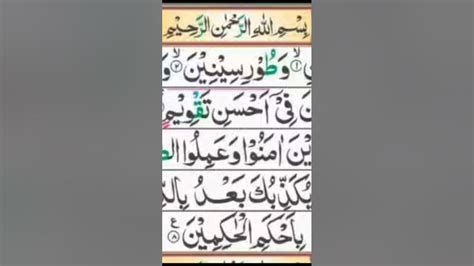 بِسْمِ اللهِ الرَّحْمٰنِ الرَّحِيْمِ
۝۱ وَطُوْرِ سِيْنِيْنَ ۝۲
فِيْۤ اَحْسَنِ تَقْوِيْمٍ
اٰمَنُوْا وَعَمِلُوا
يُكَذِّبُكَ بَعْدُ
بِاَحْكَمِ الْحٰكِمِيْنَ ۝۸